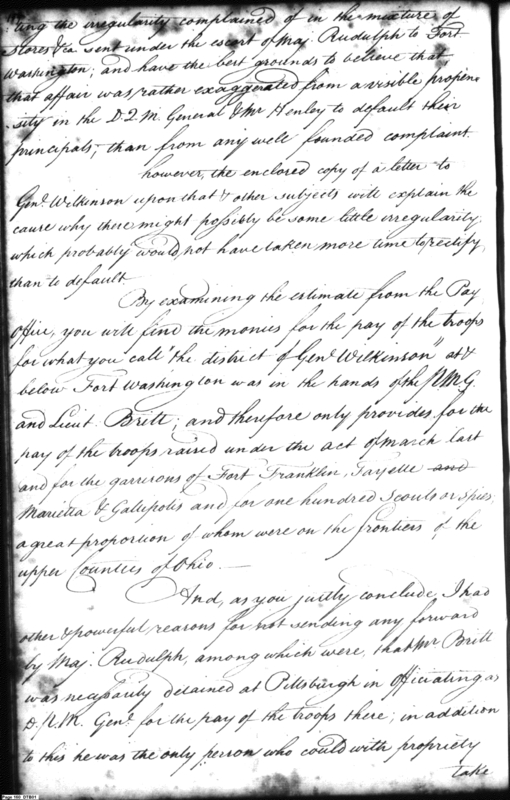 ting the irregularity complained of in the mixture of
Stores &ca sent under the escort of Maj. Rudulph to Fort
Washington; and have the best grounds to believe that
that affair was rather exaggerated from a visible propen
sity in the D.Q.M. General & Mr Henley to default their
principals, than from any well founded complaint.
however, the enclosed copy of a letter to
Genl. Wilkinson upon that & other subjects will explain the
cause why there might possibly be some little irregularity,
which probably would not have taken more time to rectify,
than to default
By examining the estimate from the Pay
Office, you will find the monies for the pay of the troops
for what you call "the district of Genl. Wilkinson" at &
below Fort Washington was in the hands of the P.M.G.
and Lieut. Britt; and therefore only provides for the
pay of the troops raised under the act of march last
and for the garrisons of Fort Franklin, Fayette and
Marietta & Galipolis and for one hundred Scouts or spies,
a great proportion of whom were on the frontiers of the
upper Counties of Ohio. —
And, as you justly conclude, I had
other & powerful reasons for not sending any forward
by Maj. Rudulph, among which were, that Mr Britt
was necessarily detained at Pittsburgh in officiating as
D.P.M. Genl. for the pay of the troops there; in addition
to this he was the only person who could with propriety
take